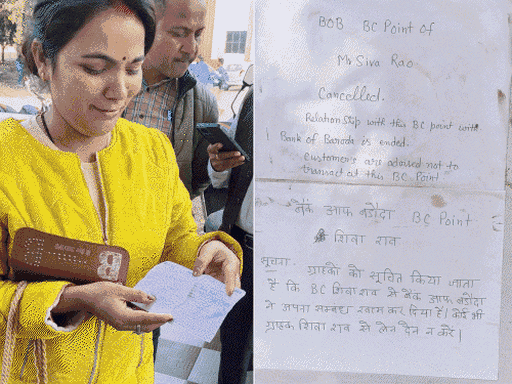 BOB BC Point of
Mr Siva Rao
Cancelled.
Relationship with this BC point with
Bank of Baroda is ended.
Customers are advised not to
transact at this BC Point
बैंक आफ बडौदा BC Point
शिवा राव
सूचना ग्राहकों को सूचित किया जाता
है कि BC शिवा राव से बैंक आफ बडौदा
ने अपना सम्बन्ध खत्म कर दिया है। कोई भी
ग्राहक शिवा राव से लेन देन न करें।